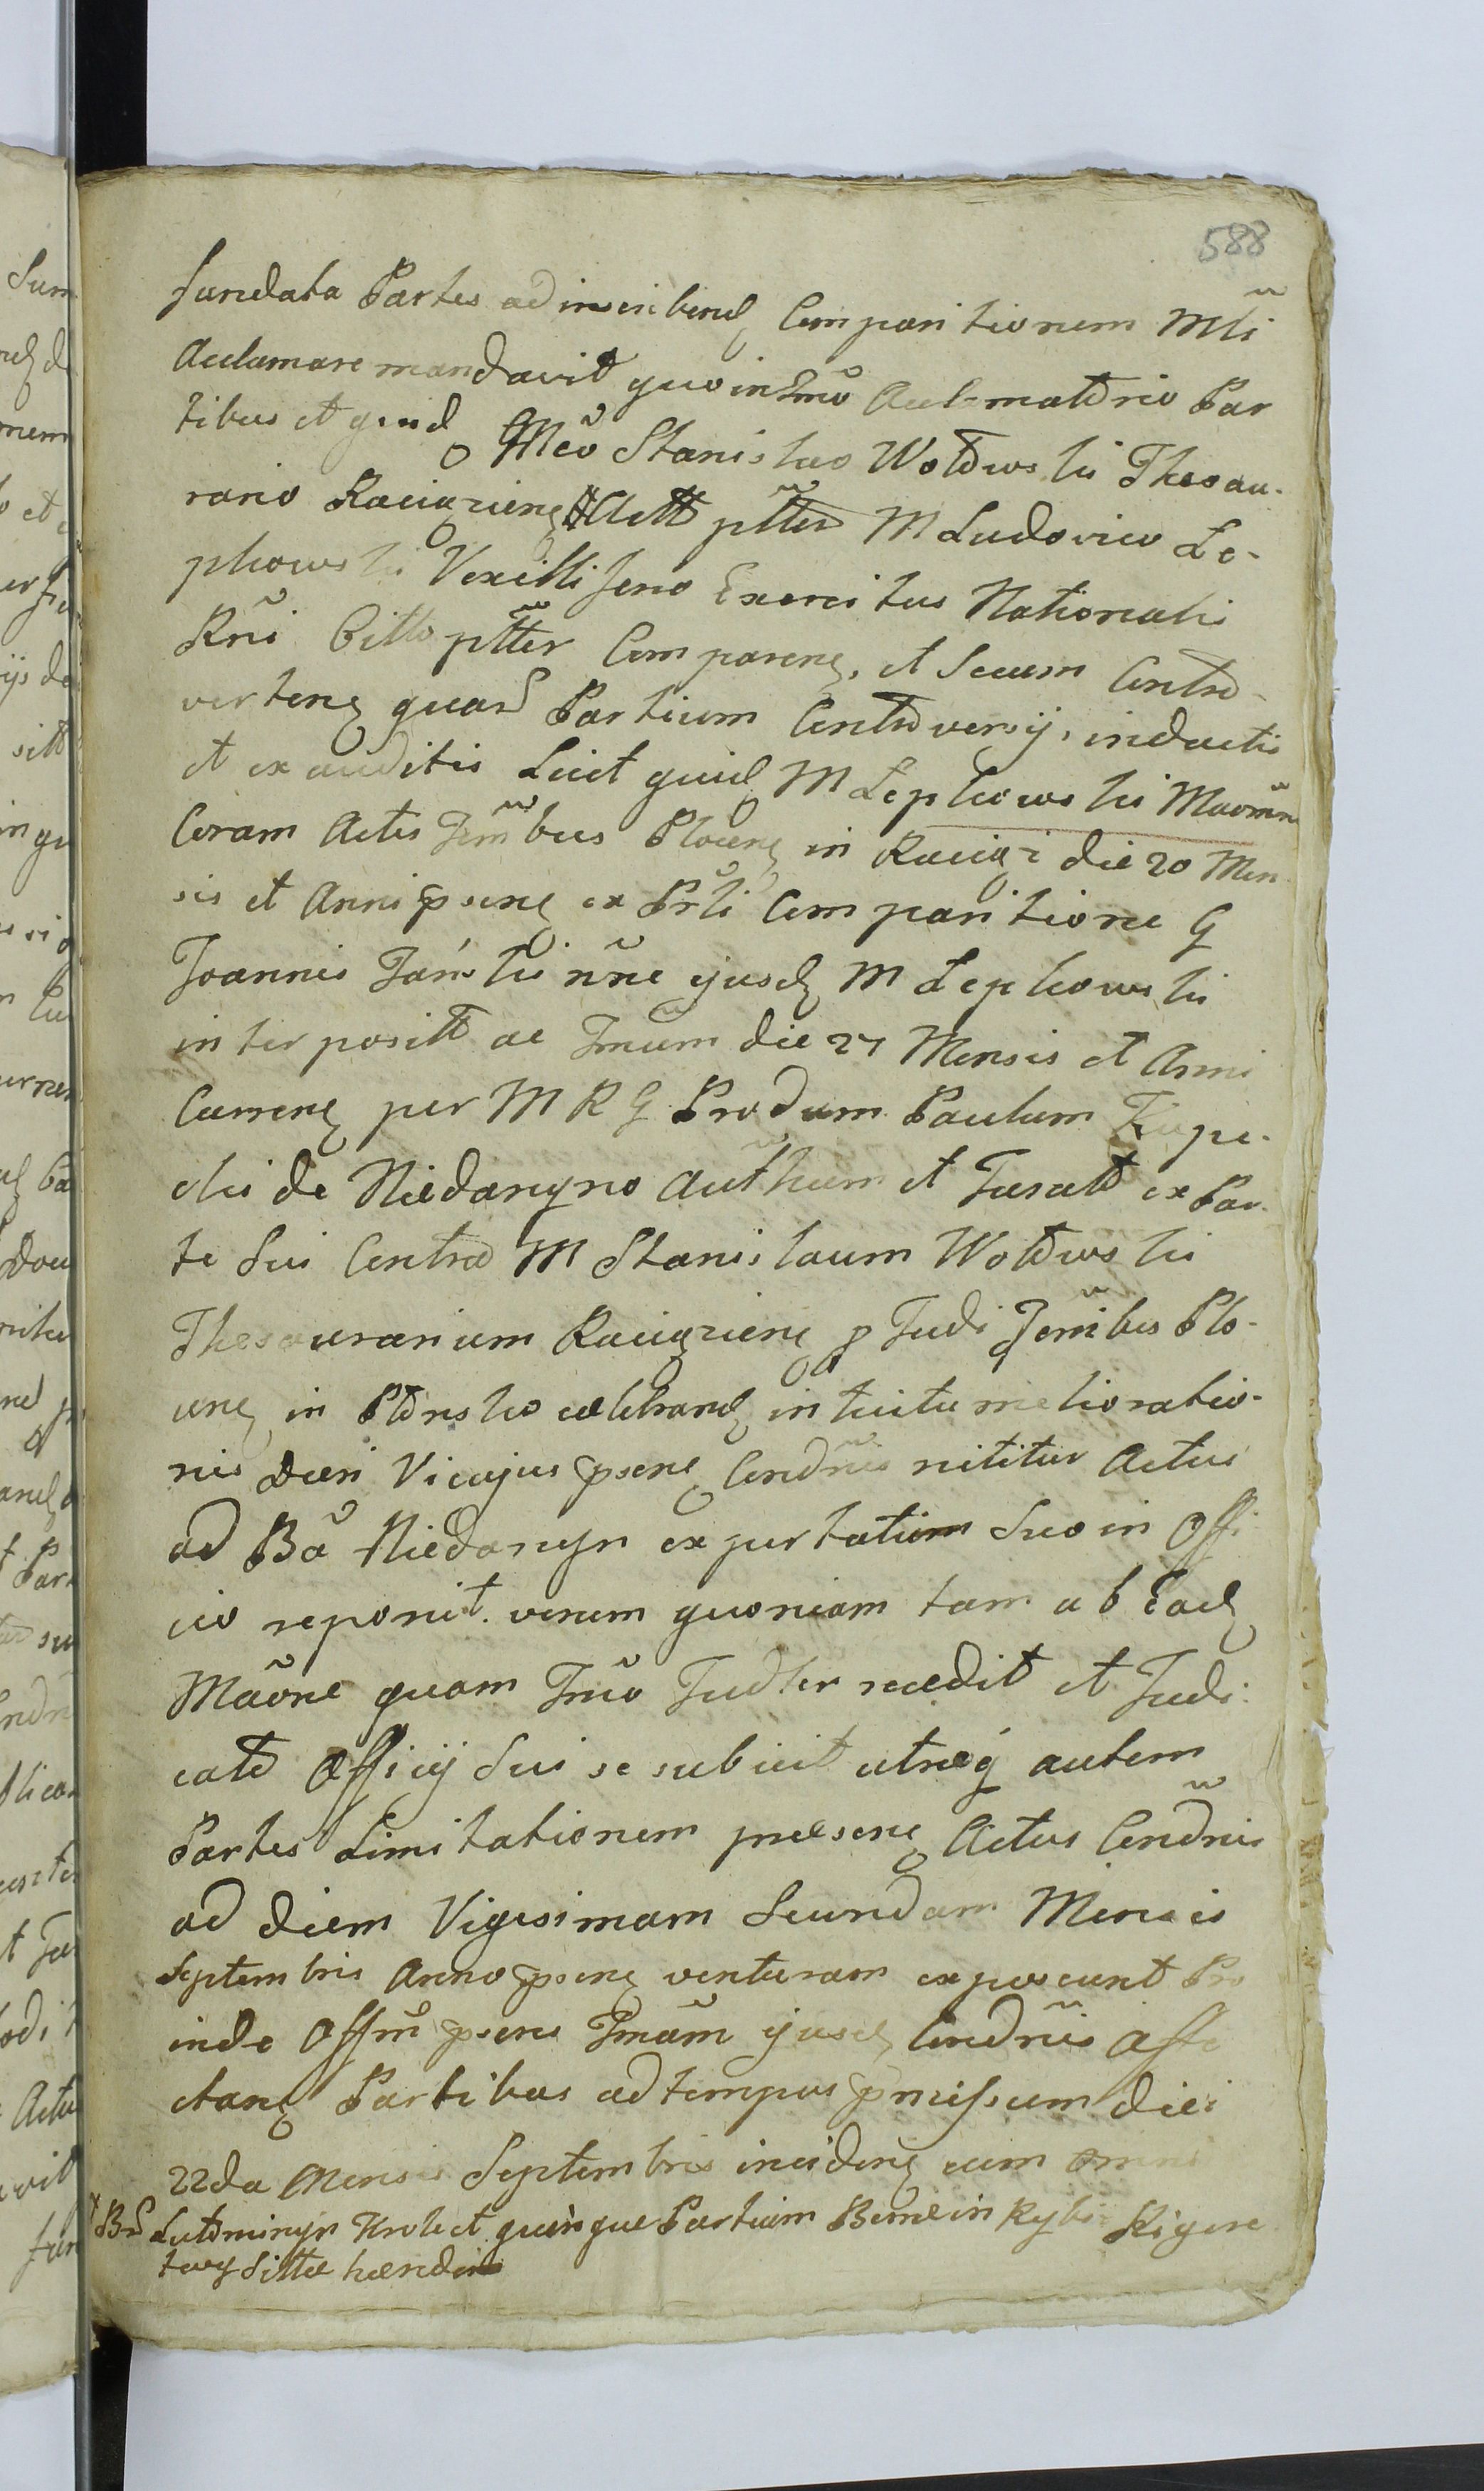 588
fundata Partes ad inscribend Comparitionem Mli
Acclamare mandavit quo intmõ Acclamatorio Par
tibus et quid Mcõ Stanislao Wołowski Thesau-
rario Raciąziens Actt ptter M Ludovico Łe-
pkowski Vexillifero Exercitus Nationalis
Rni Citto ptter Comparens, et Secum Contro-
vertens quar Partium Controversijs, inductis
et exauditis Licet quid M Łepkowski Maonm
Coram Actis Trmbus Plocens in Raciąż die 20 Men
sis et Anni psens ex Prli Comparitione G
Joannis Jański nne ejusd M Łepkowski
interpositt ac Tmum die 27 Mensis et Anni
Currens per M R G Produm Paulum
de Niedarzyno Authum et Juratt ex Par-
te Sui Contra M Stanislaum Wołowski
Thesaurarium Raciąziens p Judi Trmbus Plo-
cens in Płonsko celebrand intuitu melioratio-
nis Dcen Vi cujus psens Condnis nititur Actus
ad Bã Niedarzyn expurtatum Suo in Offi
cio reponit. verum quoniam tam ab Ead
Maõne quam Tmõ Judter recedit et Judi-
cato Officij Sui se subjicit utraeq autem
Partes Limitationem praesens Actus Condnis
ad diem Vigesimam Secundam Mensis
Septembris Anno psens venturam exposcunt Pro
inde Offm psens Tmãm ejusd Condnis Affe
ctans Partibus ad tempus pmissum diei
22da Mensis Septembris incidens cum omni
Br Lutominzyn Krole et quinque Partium Bonne in Rybi
Sittae haeredem